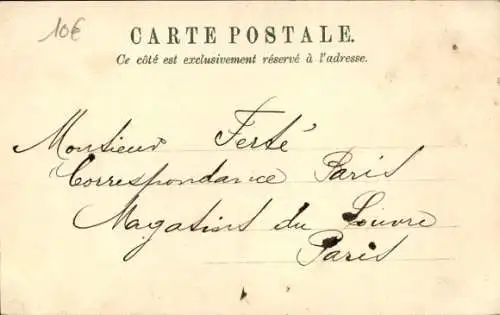 10€
CARTE POSTALE.
Ce côté est exclusivement réservé à l'adresse.
Monsieur Ferté
Correspondance Paris
Magasins du Louvre
Paris